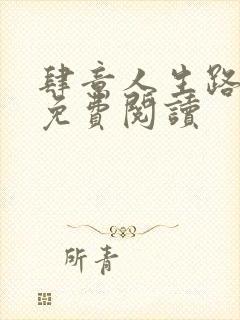 肆意人生路
免費閱讀
所青